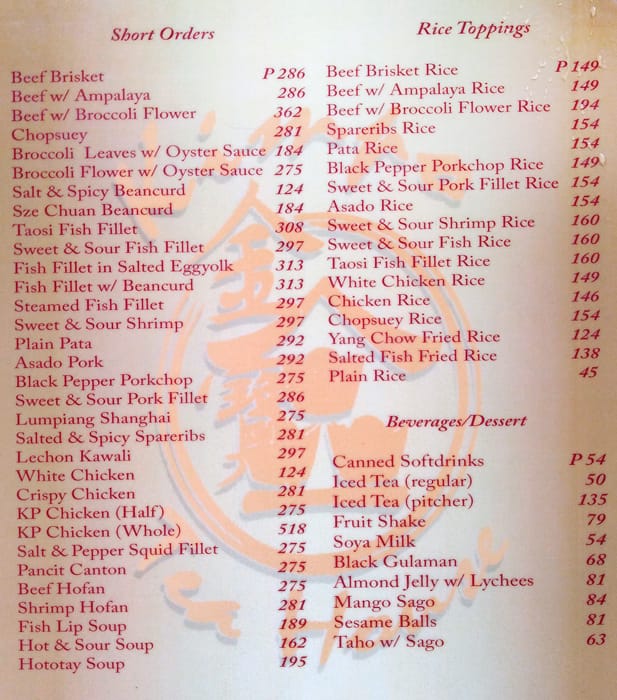 Short Orders
Beef Brisket P 286
Beef w/ Ampalaya 286
Beef w/ Broccoli Flower 362
Chopsuey 281
Broccoli Leaves w/ Oyster Sauce 184
Broccoli Flower w/ Oyster Sauce 275
Salt & Spicy Beancurd 124
Sze Chuan Beancurd 184
Taosi Fish Fillet 308
Sweet & Sour Fish Fillet 297
Fish Fillet in Salted Eggyolk 313
Fish Fillet w/ Beancurd 313
Steamed Fish Fillet 297
Sweet & Sour Shrimp 297
Plain Pata 292
Asado Pork 292
Black Pepper Porkchop 275
Sweet & Sour Pork Fillet 286
Lumpiang Shanghai 275
Salted & Spicy Spareribs 281
Lechon Kawali 297
White Chicken 124
Crispy Chicken 281
KP Chicken (Half) 275
KP Chicken (Whole) 518
Salt & Pepper Squid Fillet 275
Pancit Canton 275
Beef Hofan 275
Shrimp Hofan 281
Fish Lip Soup 189
Hot & Sour Soup 162
Hototay Soup 195
Rice Toppings
Beef Brisket Rice P 149
Beef w/ Ampalaya Rice 149
Beef w/ Broccoli Flower Rice 194
Spareribs Rice 154
Pata Rice 154
Black Pepper Porkchop Rice 149
Sweet & Sour Pork Fillet Rice 154
Asado Rice 154
Sweet & Sour Shrimp Rice 160
Sweet & Sour Fish Rice 160
Taosi Fish Fillet Rice 160
White Chicken Rice 149
Chicken Rice 146
Chopsuey Rice 154
Yang Chow Fried Rice 124
Salted Fish Fried Rice 138
Plain Rice 45
Beverages/Dessert
Canned Softdrinks P 54
Iced Tea (regular) 50
Iced Tea (pitcher) 135
Fruit Shake 79
Soya Milk 54
Black Gulaman 68
Almond Jelly w/ Lychees 81
Mango Sago 84
Sesame Balls 81
Taho w/ Sago 63
金
寶
Tea House